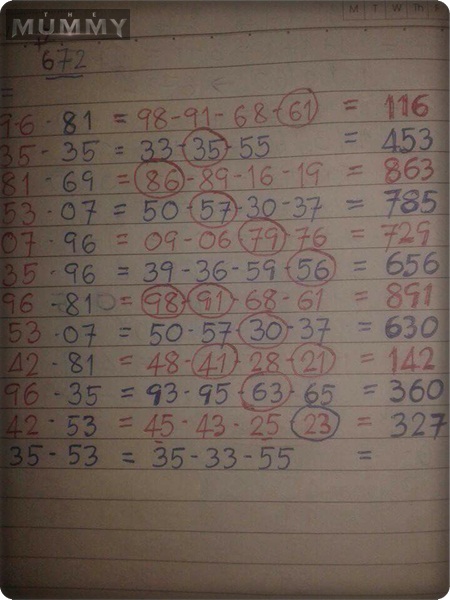 THE
MUMMY
M T W Th F
672
=
96 - 81 = 98-91-68-61 = 116
35 - 35 = 33-35-55 = 453
81 - 69 = 86-89-16-19 = 863
53 - 07 = 50-57-30-37 = 785
07 - 96 = 09-06-79-76 = 729
35 - 96 = 39-36-59-56 = 656
96 - 81 = 98-91-68-61 = 891
53 - 07 = 50-57-30-37 = 630
42 - 81 = 48-41-28-21 = 142
96 - 35 = 93-95-63-65 = 360
42 - 53 = 45-43-25-23 = 327
35 - 53 = 35-33-55 =